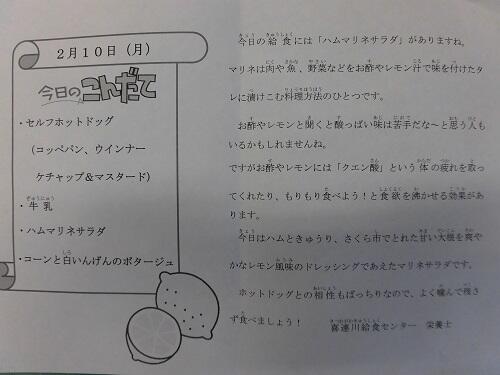 2月10日（月）
今日のこんだて
・セルフホットドッグ
（コッペパン、ウインナー
ケチャップ＆マスタード）
・牛乳
・ハムマリネサラダ
・コーンと白いんげんのポタージュ
今日の給食には「ハムマリネサラダ」がありますね。
マリネは肉や魚、野菜などをお酢やレモン汁で味を付けたタ
レに漬けこむ料理方法のひとつです。
お酢やレモンと聞くと酸っぱい味は苦手だな～と思う人も
いるかもしれませんね。
ですがお酢やレモンには「クエン酸」という体の疲れを取っ
てくれたり、もりもり食べよう！と食欲を沸かせる効果があ
ります。
今日はハムときゅうり、さくら市でとれた甘い大根を爽や
かなレモン風味のドレッシングであえたマリネサラダです。
ホットドッグとの相性もばっちりなので、よく噛んで残さ
ず食べましょう！　喜連川給食センター　栄養士